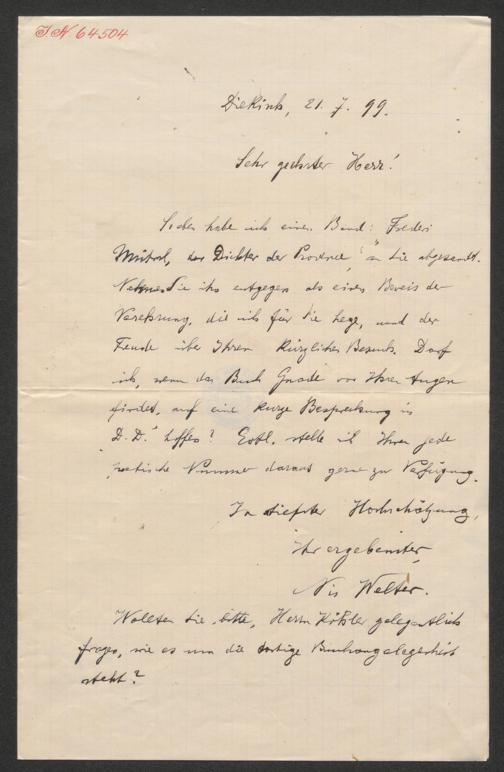 J.N. 64504
Diekirch, 21. 7. 99.
Sehr geehrter Herr!
Soeben habe ich einen Band: Frederi
Mistral, der Dichter der Provence" an Sie abgesandt.
Nehmen Sie ihn entgegen als einen Beweis der
Verehrung, die ich für Sie hege, und der
Freude über Ihren kürzlichen Besuch. Darf
ich, wenn das Buch Gnade vor Ihren Augen
findet, auf eine kurze Besprechung in
"D. D." hoffen? Evtl. stelle ich Ihnen jede
poetische Nummer daraus gerne zur Verfügung.
In tiefster Hochschätzung,
Ihr ergebenster,
Nik Welter.
Wollten Sie, bitte, Herrn gelegentlich
fragen, wie es um die
steht?